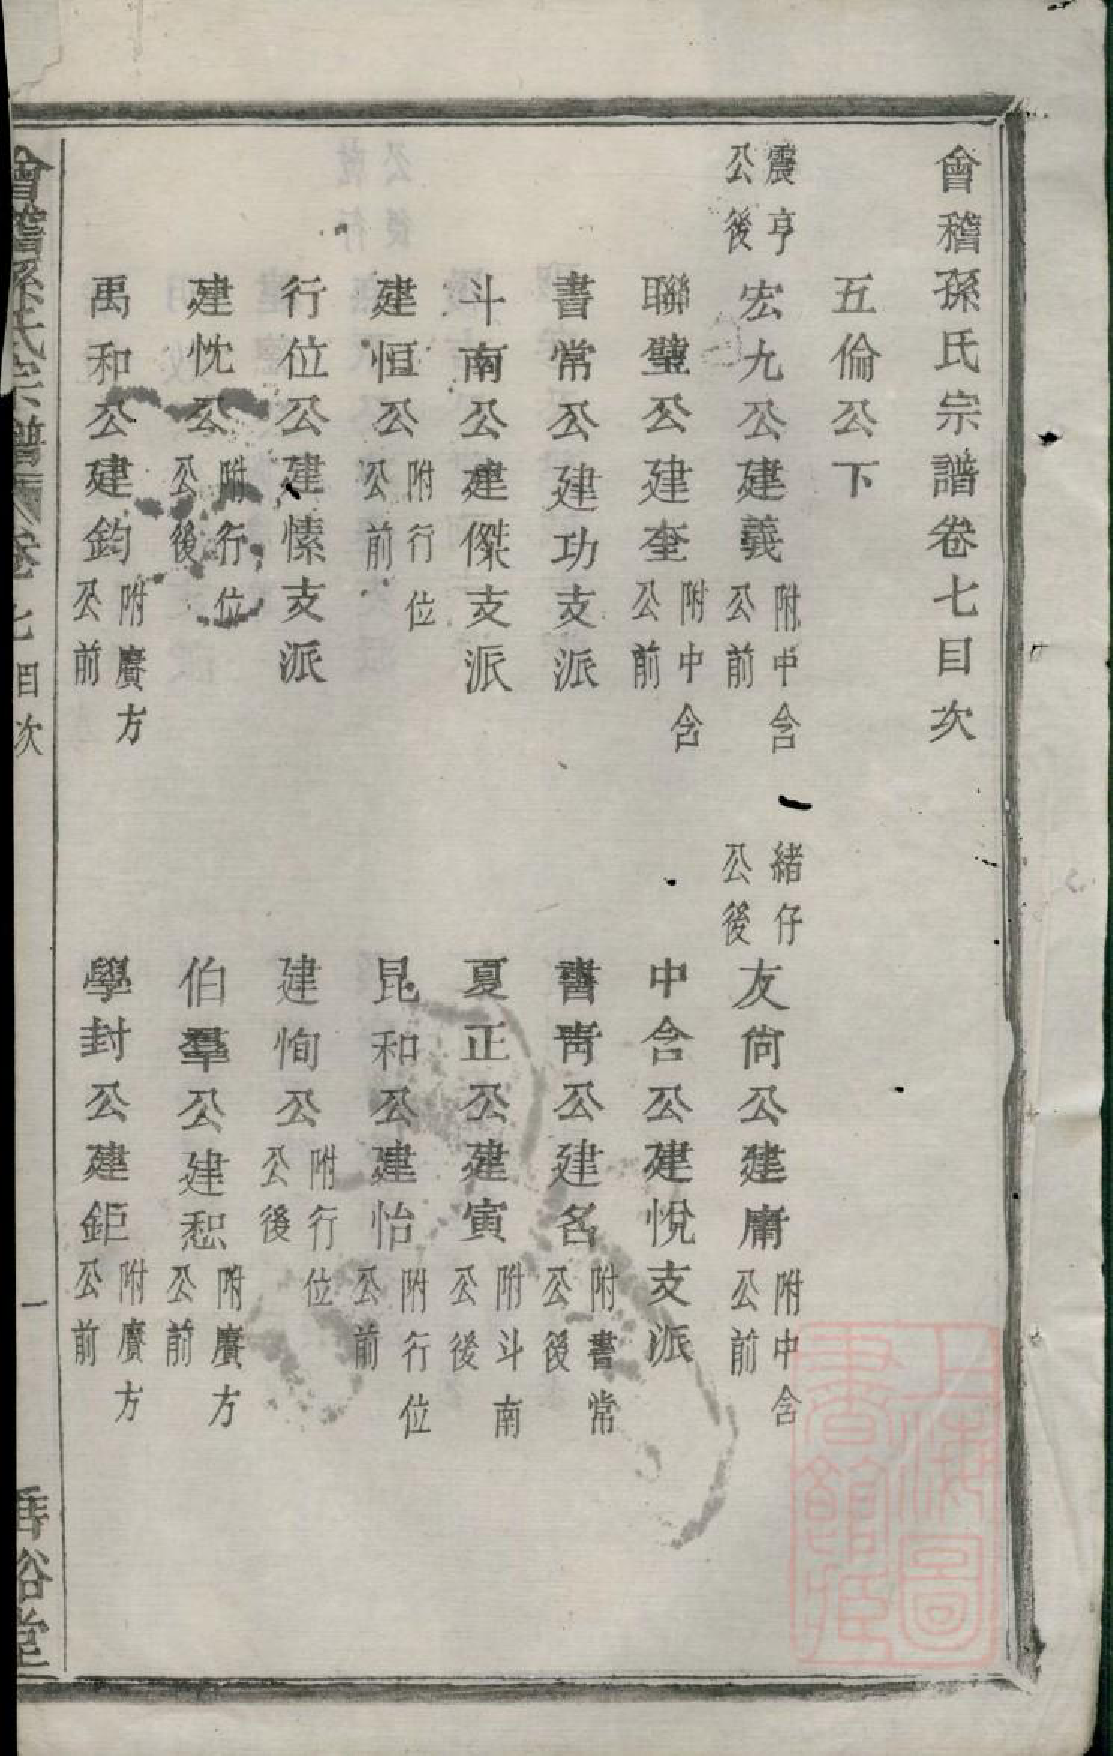 會稽孫氏宗譜卷七目次
五倫公下
震亨公後
宏九公建義附中含公前
緒仔公後
友尙公建庸附中含公前
聯璧公建奎附中含公前
中含公建悅支派
書常公建功支派
書靑公建名附書常公後
斗南公建傑支派
夏正公建寅附斗南公後
建恒公附行位公前
昆和公建怡附行位公前
行位公建愫支派
建恂公附行位公後
建忱公附行位公後
伯羣公建恕附賡方公前
禹和公建鈞附賡方公前
學封公建鉅附賡方公前
會稽孫氏宗譜
卷七目次
一
垂裕堂
上海圖書館藏